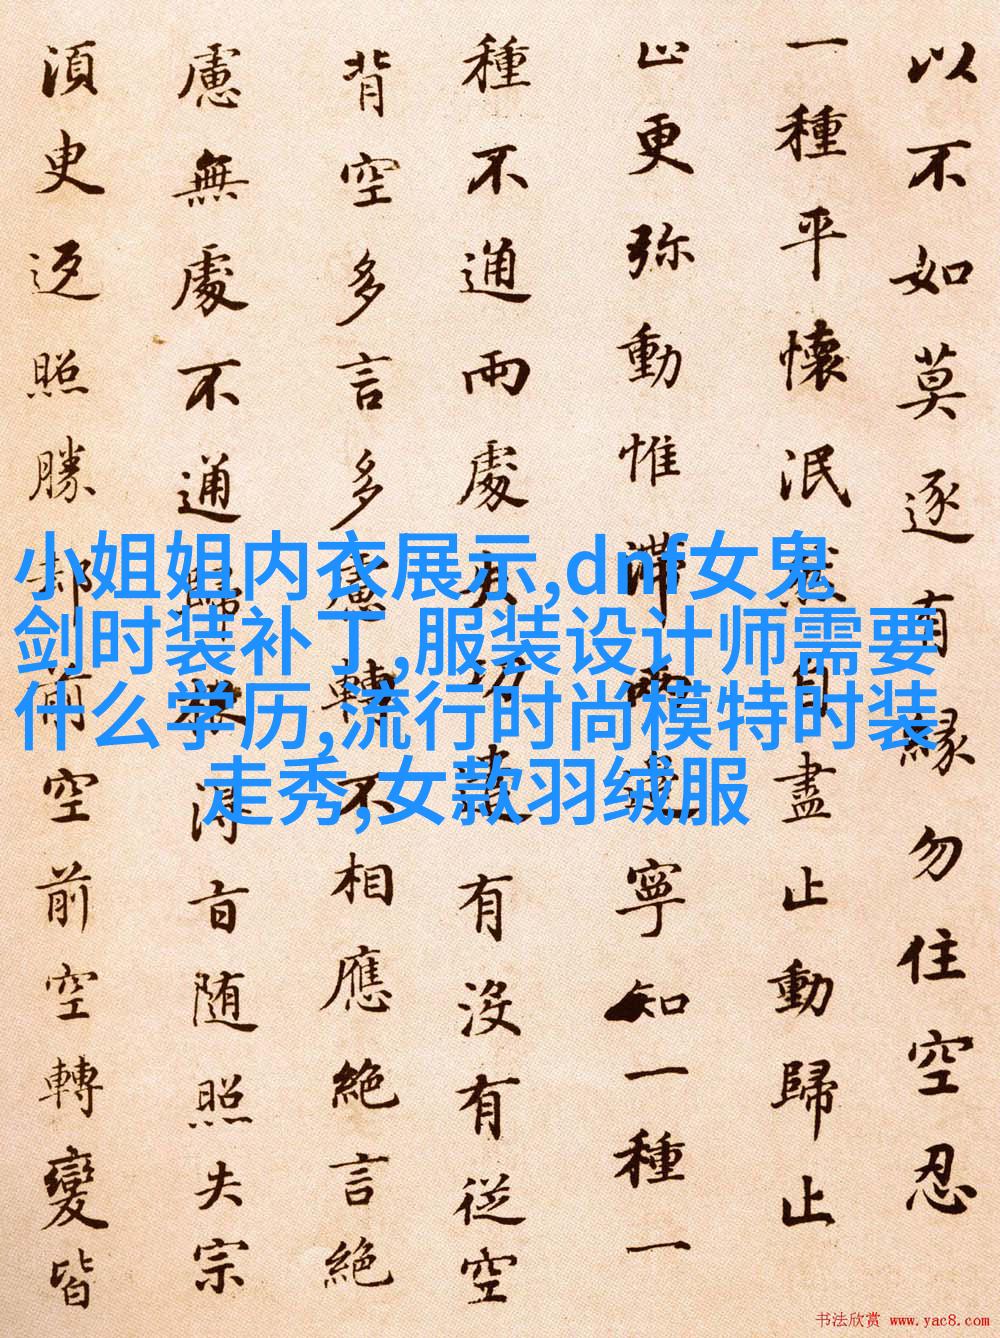 以不如莫逐有緣勿住空忍
一種平懷泯然自盡止動歸止
止更弥動惟滞兩邊寧知一種一
種不通兩處失功遣有沒有從空
背空多言多慮轉不相應絕言絕
慮無處不通歸根得旨随照失宗
須臾返照勝却前空前空轉變皆
小姐姐内衣展示,dnf女鬼
剑时装补丁,服装设计师需要
什么学历,流行时尚模特时装
走秀,女款羽绒服
书法欣赏 www.yac8.com